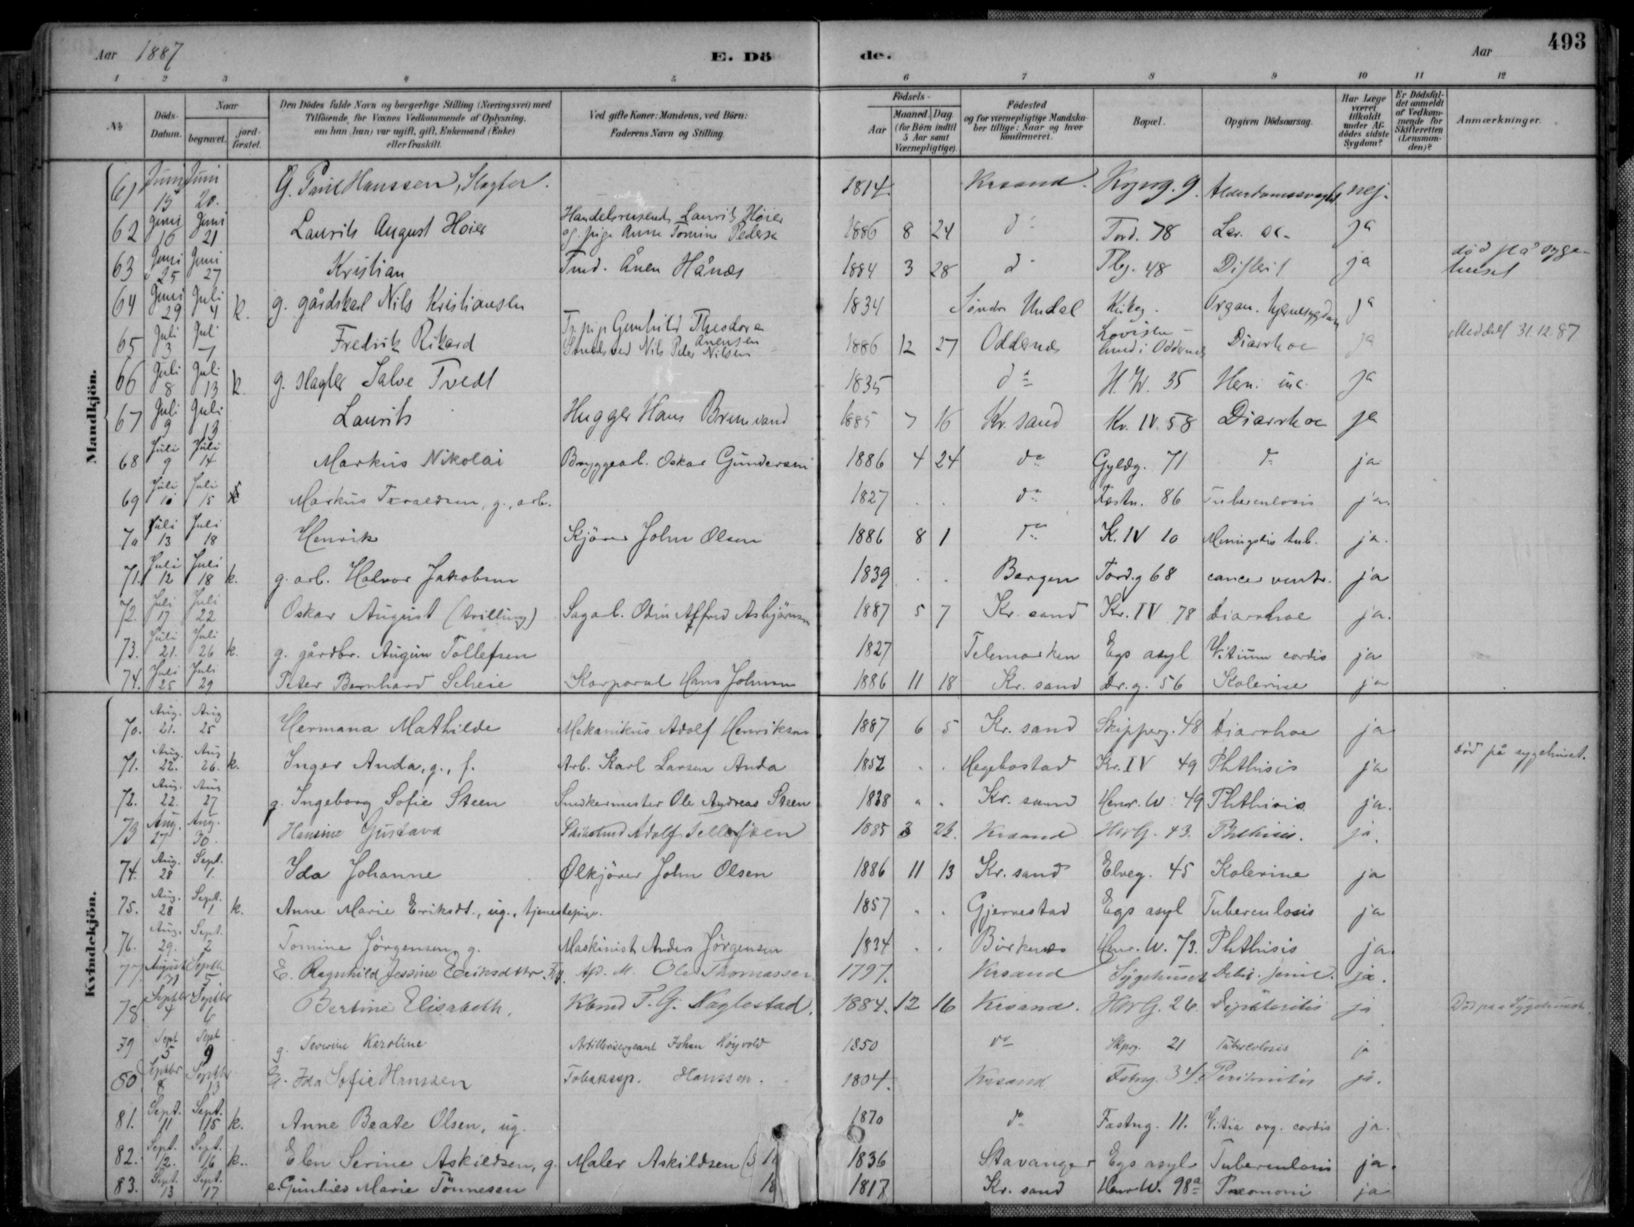 Aar 1887
E. Döde.
Aar
493
1 2 3 4 5 6 7 8 9 10 11 12
No
Döds-Datum.
Naar
begravet.
jord-fæstet.
Den Dödes fulde Navn og borgerlige Stilling (Næringsvei) med
Tilföiende, for Voxnes Vedkommende af Oplysning,
om han (hun) var ugift, gift, Enkemand (Enke)
eller fraskilt.
Ved gifte Koner: Mandens, ved Börn:
Faderens Navn og Stilling.
Födsels-
Aar
Maaned. Dag
(for Börn indtil
5 Aar samt
Værnepligtige).
Födested
og for værnepligtige Mandskaber tillige: Naar og hvor
konfirmeret.
Bopæl.
Opgiven Dödsaarsag.
Har Læge
været
tilkaldt
under Afdödes sidste
Sygdom?
Er Dödsfaldet anmeldt
af Vedkommende for
Skifteretten
(Lensmanden)?
Anmærkninger.
Mandkjön.
61 Juni 15 Juni 20. G. Paul Hanssen, Slagter. 1814. Krsand. Kopng. 9. nej.
62 Juni 16 Juni 21 Laurits August Höier Handelsreisende Laurits Höier
og pige Anne Tomine Peders 1886 8 24 do Tord. 78 ja
63 Juni 25 Juni 27 Kristian Tmd. Ånen Hånæs 1884 3 28 do Tbg. 48 Difterit ja död på syge-
huset
64 Juni 29 Juli 4 k. g. gårdskarl Nils Kristiansen 1834 Söndre Undal Organ. hjertesygdom ja
65 Juli 3 Juli 7 Fredrik Rikard Tj.pig. Gunhild Theodora
Anensen
Nils Peter Nilsen 1886 12 27 Oddernæs
i Oddernæs Diarrhoe ja Meddelt 31.12.87
66 Juli 8 Juli 13 k. g. slagter Salve Tvedt 1835 do H. W. 35 ja
67 Juli 9 Juli 13 Laurits Hugger Hans Brennvand 1885 7 16 Kr. sand Kr. IV. 58 Diarrhoe ja
68 Juli 9 Juli 14 Markus Nikolai Bryggearb. Oskar Gundersen 1886 4 24 do Gyldg. 71 do ja
69 Juli 10 Juli 15 Markus Taraldsen, g., arb. 1827 . . do Fæstn. 86 Tuberculosis ja.
70 Juli 13 Juli 18 Henrik Kjörer John Olsen 1886 8 1 do K. IV 10 Meningitis tub. ja.
71. Juli 12 Juli 18 k. g. arb. Halvor Jakobsen 1839 . . Bergen Tord.g 68 cancer ventr. ja
72. Juli 17 Juli 22 Oskar August (trilling) Sagarb. Odin Alfred Asbjörnsen 1887 5 7 Kr. sand Kr. IV 78 Diarrhoe ja.
73. Juli 21. Juli 26 k. g. gårdbr. Augun Tollefsen 1827 Telemarken Egs asyl Vitium cordis ja
74. Juli 25 Juli 29 Peter Bernhard Scheie Korporal Hans Johnsen 1886 11 18 Kr. sand Dr.g. 56 Kolerine ja
Kvindekjön.
70. Aug. 21. Aug 25 Hermana Mathilde Mekanikus Adolf Henriksen 1887 6 5 Kr. sand Skipperg. 48 Diarrhoe ja
71. Aug. 22. Aug 26. k. Inger Anda, g., f. Arb. Karl Larsen Anda 1852 . . Hegebostad Kr. IV 49 Phthisis ja död på sygehuset.
72. Aug. 22. Aug 27 g. Ingeborg Sofie Steen Snedkermester Ole Andreas Steen 1828 . . Kr. sand Henr. W. 49 Phthisis ja.
73 Aug. 27 Aug. 30. Hansine Gustava Adolf Tellefsen 1885 3 22. Krsand HWG. 43. Phthisis. ja.
74. Aug. 28 Sept. 1. Ida Johanne Ölkjörer John Olsen 1886 11 13 Kr. sand Elveg. 45 Kolerine ja
75. Aug. 28 Sept. 1 k. Anne Marie Eriksdt., ug., tjenestepige. 1857 . . Gjerrestad Egs asyl Tuberculosis ja
76. Aug. 29. Sept. 2 Tomine Jörgensen, g. Maskinist Anders Jörgensen 1834 . . Birkenes Henr. W. 73. Phthisis ja.
77 August 31 Septb 5 E. Ragnhild Jessine Eriksdtter Ole Thomassen. 1797. Krsand Sygehuset ja.
78 Septbr 4 Septbr 6 Bertine Elisabeth. Kbmd T. G. Naglestad. 1884. 12 16 Krsand. HWG. 26. ja Död paa Sygehuset
79 Sept 5 Sept 9 g. Severine Karoline Artillerisergeant Johan Höyvold 1850 do Skpg. 21 Tuberculosis ja
80 Septbr 8 Septbr 13 E. Ida Sofie Hanssen Tobakssp. Hanssen. 1804. Krsand Fstng. 34. Peritonitis ja.
81. Sept. 11 Sept. 15 k. Anne Beate Olsen, ug. 1870 do Fæstng. 11. Vitia org. cordis ja.
82. Sept. 12. Sept. 16 k. Elen Serine Askildsen, g. Maler Askildsen 1836 Stavanger Egs asyl Tuberculosis ja.
83. Sept. 13 Sept. 17 e. Gunhild Marie Tönnesen 1817 Kr. sand Henr W. 98a Pneumoni ja